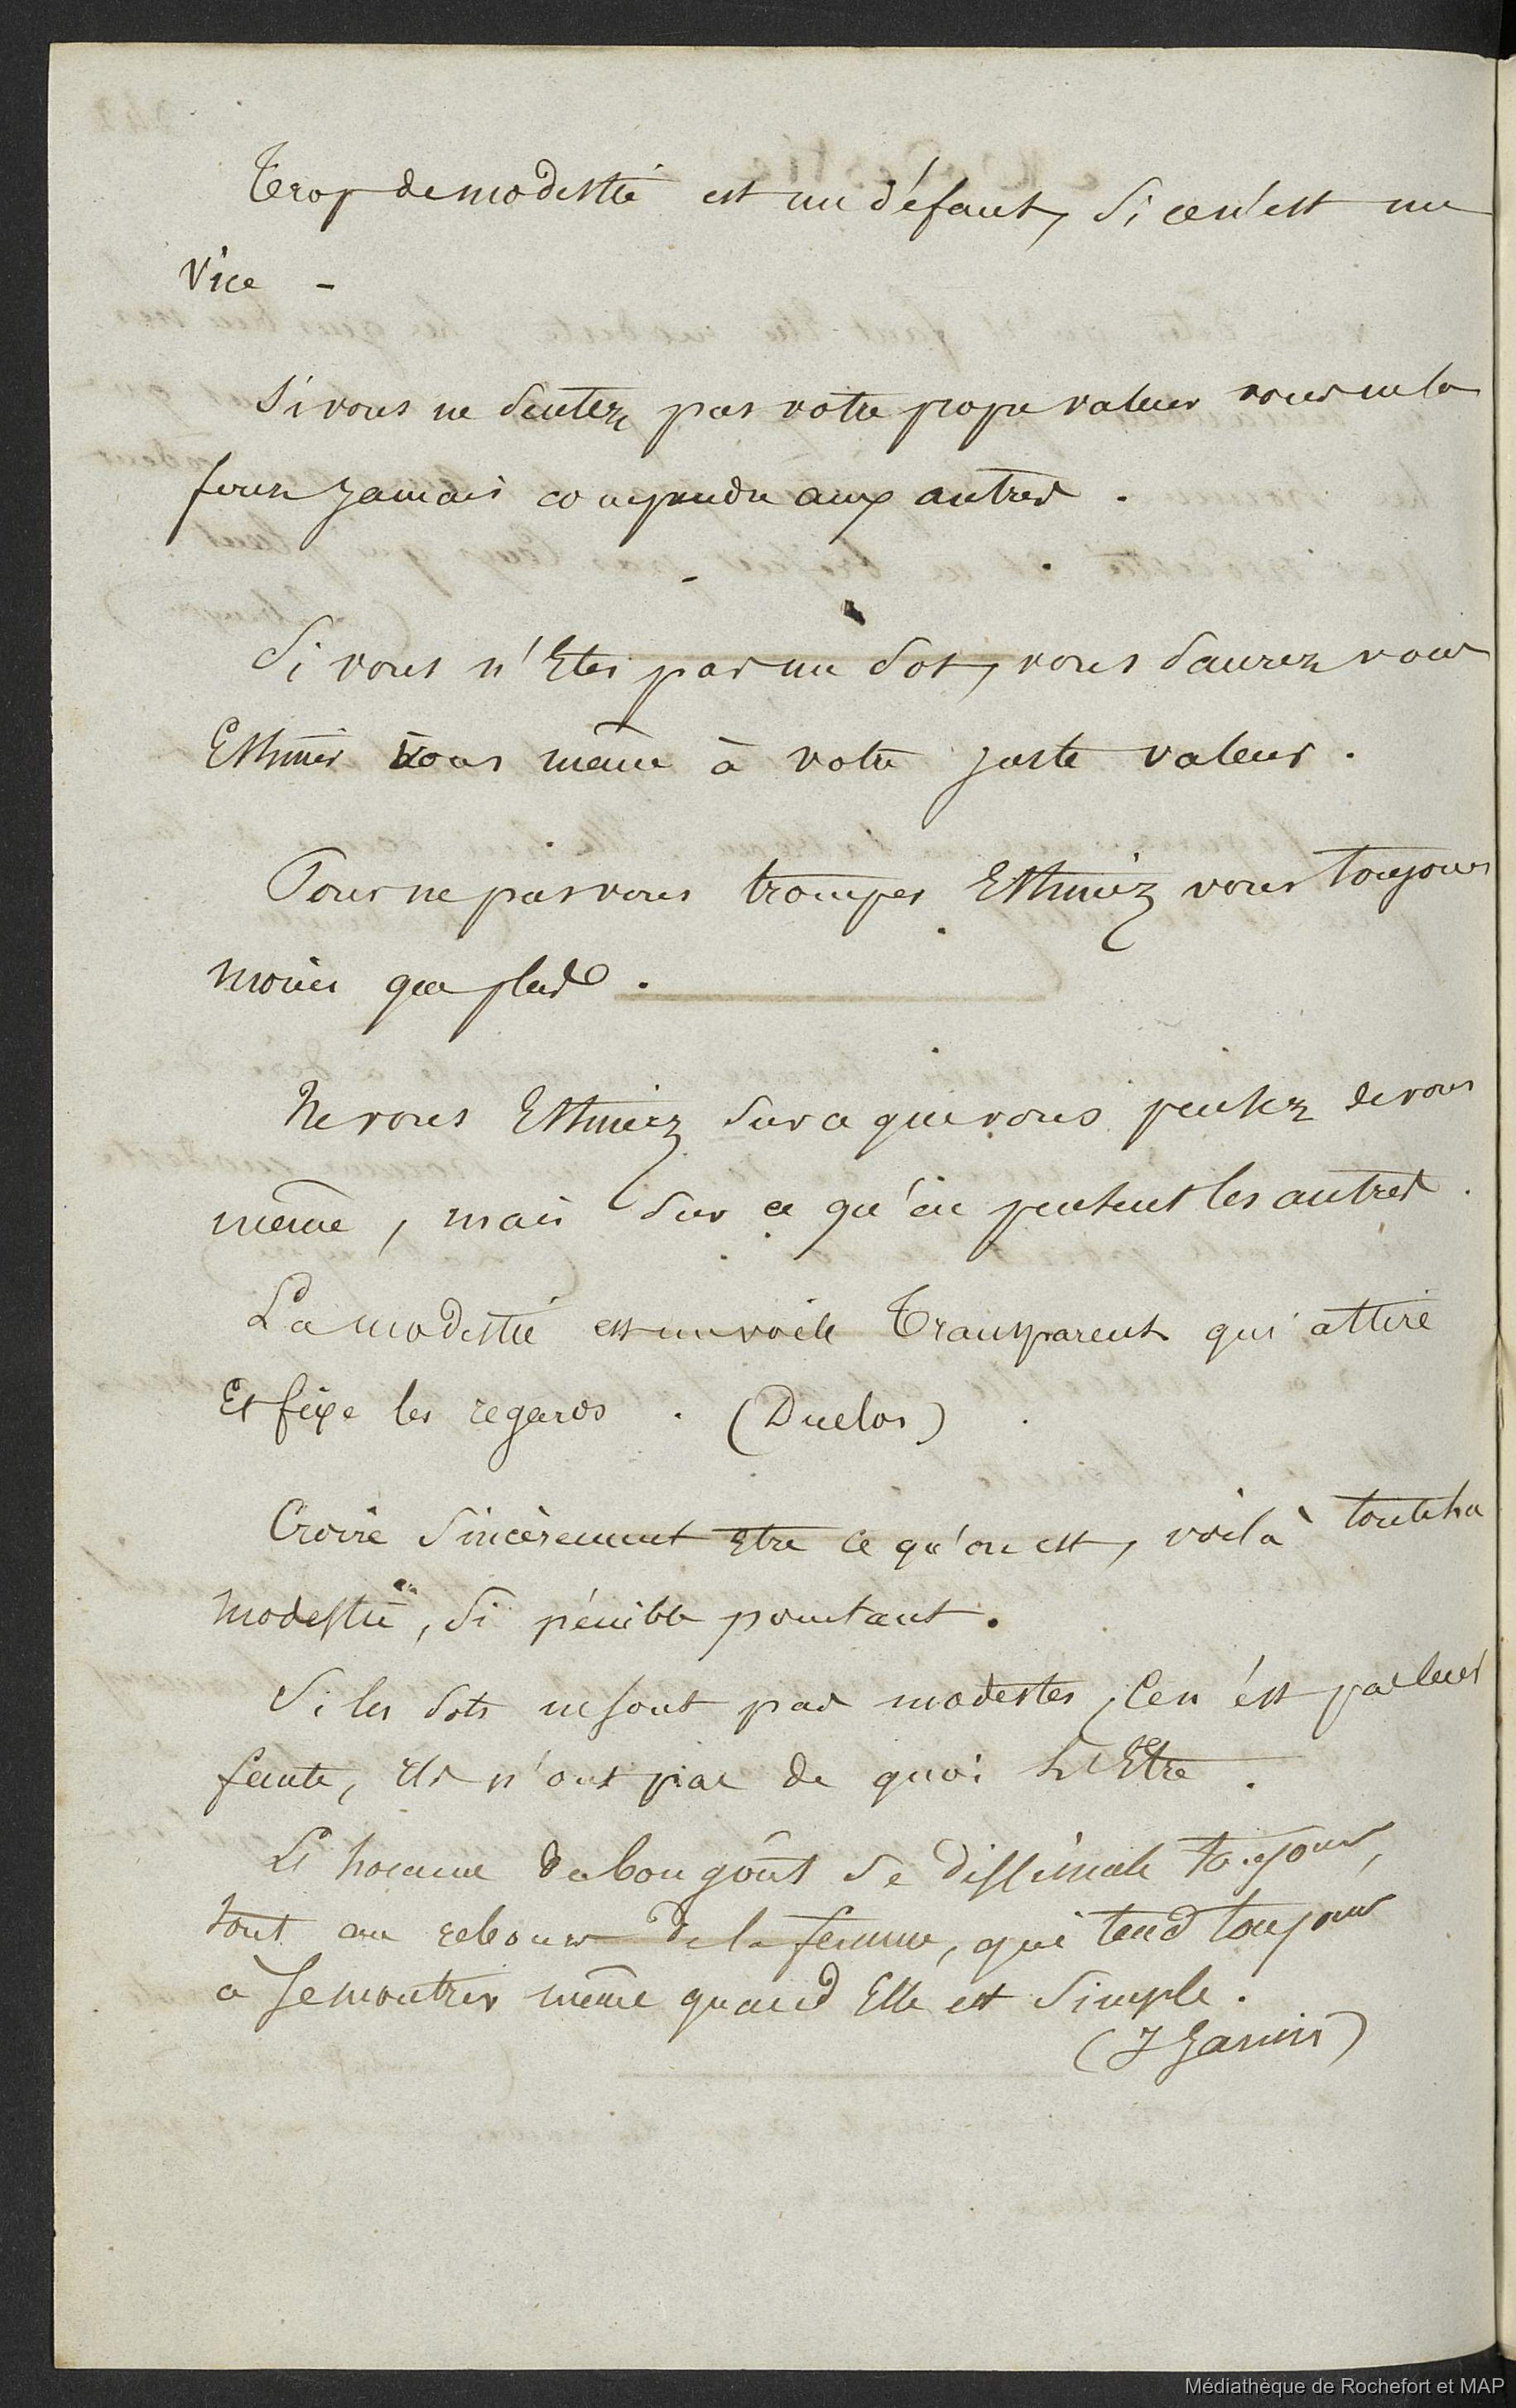 Trop de modestie est un défaut, si ce n'est un
vice -
Si vous ne sentez pas votre propre valeur vous ne la
ferez jamais comprendre aux autres .
Si vous n'Etes pas un sot, vous saurez vous
Estimer vous même à votre juste valeur .
Pour ne pas vous tromper Estimez vous toujours
moins que plus .
Ne vous Estimez sur ce que vous pensez de vous
même , mais sur ce qu'en pensent les autres .
La modestie est un voile Transparent qui attire
Et fixe les regards . (Duclos)
Croire Sincèrement Etre ce qu'on est, voilà toute la
modestie, si pénible pourtant .
Si les sots ne sont pas modestes, Ce n'est pas leur
faute, ils n'ont pas de quoi L'Etre .
L'homme de bon goût se dissimule toujours,
tout au rebours de la femme, qui tend toujours
à se montrer même quand Elle est Simple .
(J Janin)
Médiathèque de Rochefort et MAP